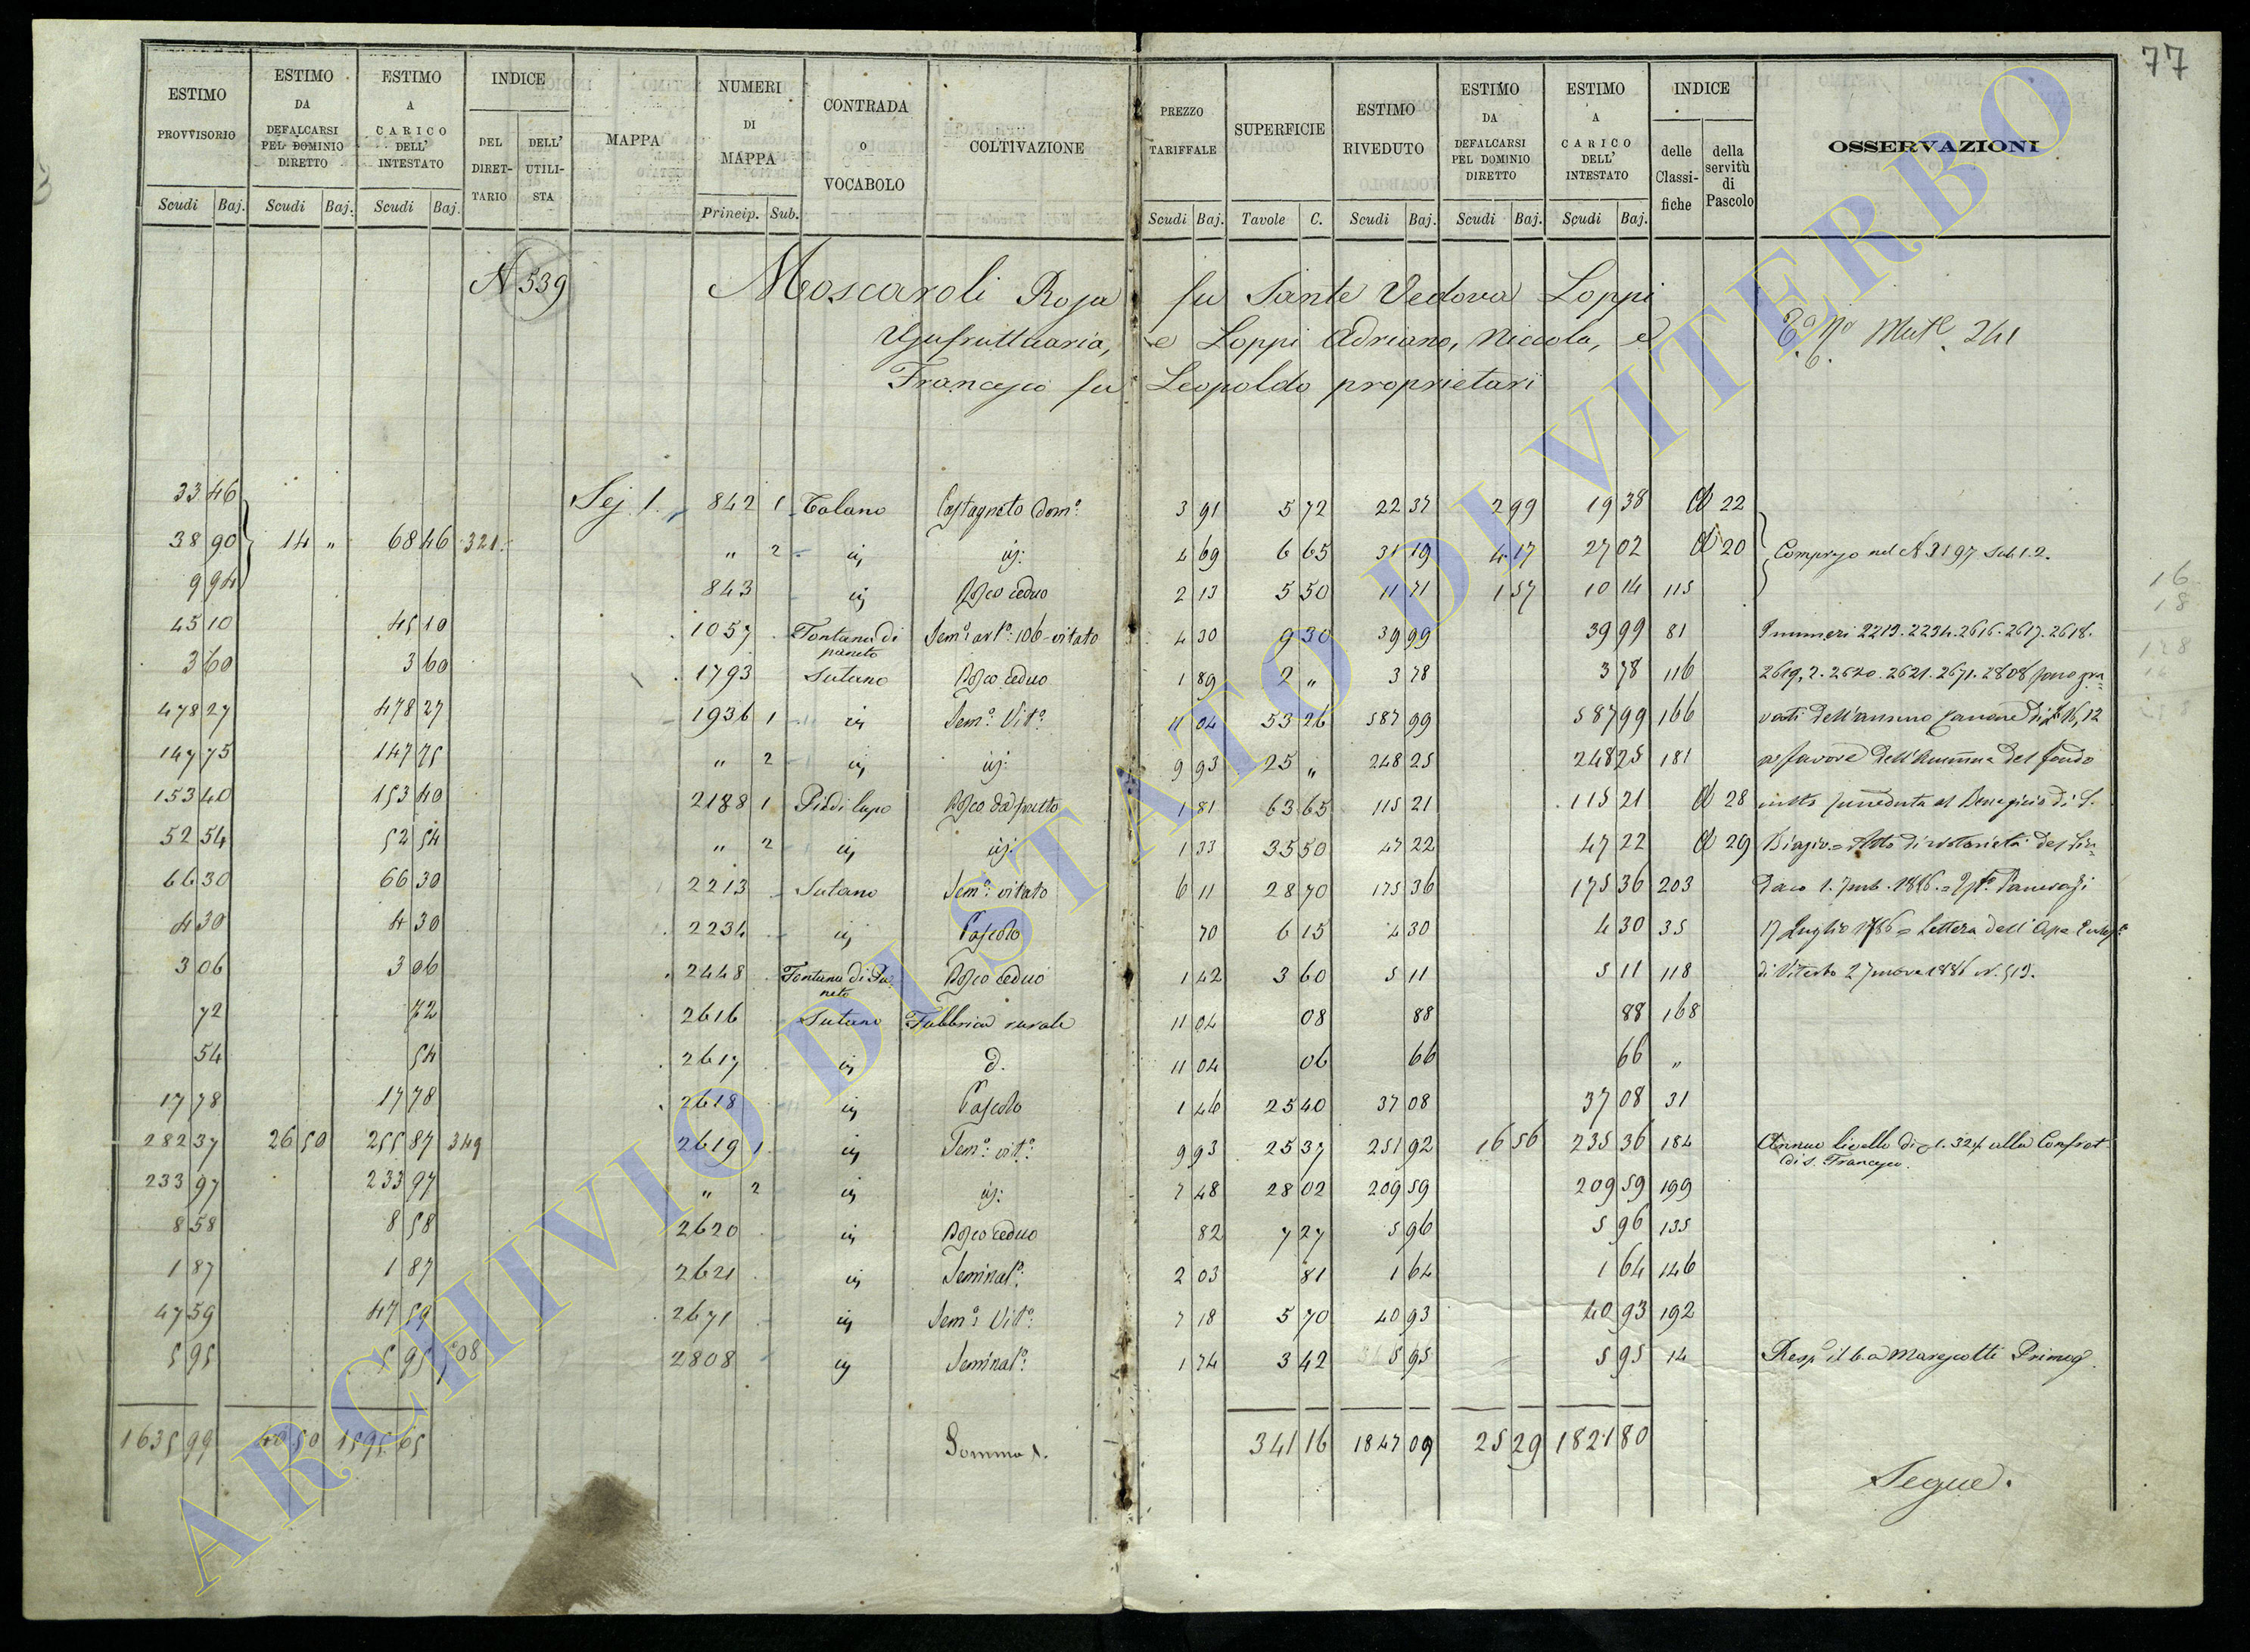 77
ESTIMO PROVVISORIO Scudi Baj. ESTIMO DA DEFALCARSI PEL DOMINIO DIRETTO Scudi Baj. ESTIMO A CARICO DELL' INTESTATO Scudi Baj. INDICE DEL DIRETTARIO DELL' UTILISTA MAPPA NUMERI DI MAPPA Princip. Sub. CONTRADA O VOCABOLO COLTIVAZIONE PREZZO TARIFFALE Scudi Baj. SUPERFICIE Tavole C. ESTIMO RIVEDUTO Scudi Baj. ESTIMO DA DEFALCARSI PEL DOMINIO DIRETTO Scudi Baj. ESTIMO A CARICO DELL' INTESTATO Scudi Baj. INDICE delle Classifiche della servitù di Pascolo OSSERVAZIONI
N 539 Moscaroli Rosa fu Sante Vedova Loppi
Usufruttuaria, e Loppi Adriano, Niccola, e Mut.e 241
Francesco fu Leopoldo proprietari
33 46 Sez. 1. 842 1 Colano Castagneto dom.o 3 91 5 72 22 37 2 99 19 38 22
38 90 14 " 68 46 321 " 2 4 69 6 65 31 19 4 17 27 02 20 Compreso nel N 3197 Sub 1.2.
9 94 843 Bosco ceduo 2 13 5 50 11 71 1 57 10 14 115
45 10 45 10 1057 Fontana di paneto Sem.o art.o 106 vitato 4 30 9 30 39 99 39 99 81 I numeri 2213. 2234. 2616. 2617. 2618.
3 60 3 60 1793 Sutano Bosco ceduo 1 89 2 " 3 78 3 78 116 2619, 2. 2620. 2621. 2671. 2808 sono gra=
478 27 478 27 1936 1 Sem.o Vit.o 11 04 53 26 587 99 587 99 166 vati dell'annuo canone di
147 75 147 75 " 2 9 93 25 " 248 25 248 25 181 a favore dell'Amm.ne del fondo
153 40 153 40 2188 1 Piedilupo Bosco da frutto 1 81 63 65 115 21 115 21 28 culto Beneficio di S.
52 54 52 54 " 2 1 33 35 50 47 22 47 22 29 Biagio = Atto di notorietà del Sin=
66 30 66 30 2213 Sutano Sem.o vitato 6 11 28 70 175 36 175 36 203 daco
4 30 4 30 2234 Pascolo 70 6 15 4 30 4 30 35 17 Luglio 1786 = Lettera dell'
3 06 3 06 2448 Fontana di Paneto Bosco ceduo 1 42 3 60 5 11 5 11 118 di Viterbo
72 72 2616 Sutano Fabbrica rurale 11 04 08 88 88 168
54 54 2617 d. 11 04 06 66 66 "
17 78 17 78 2618 Pascolo 1 46 25 40 37 08 37 08 31
282 37 26 50 255 87 349 2619 1 Sem.o vit.o 9 93 25 37 251 92 16 56 235 36 184 Annuo livello di alla Confrat
di S. Francesco.
233 97 233 97 " 2 7 48 28 02 209 59 209 59 199
8 58 8 58 2620 Bosco ceduo 82 7 27 5 96 5 96 135
1 87 1 87 2621 Seminat.o 2 03 81 1 64 1 64 146
47 59 47 59 2671 Sem.o Vit.o 7 18 5 70 40 93 40 93 192
5 95 5 95 508 2808 Seminat.o 1 74 3 42 5 95 5 95 14 Marescotti
1635 99 40 50 1595 65 Somma 341 16 1847 09 25 29 1821 80
Segue.
ARCHIVIO DI STATO DI VITERBO